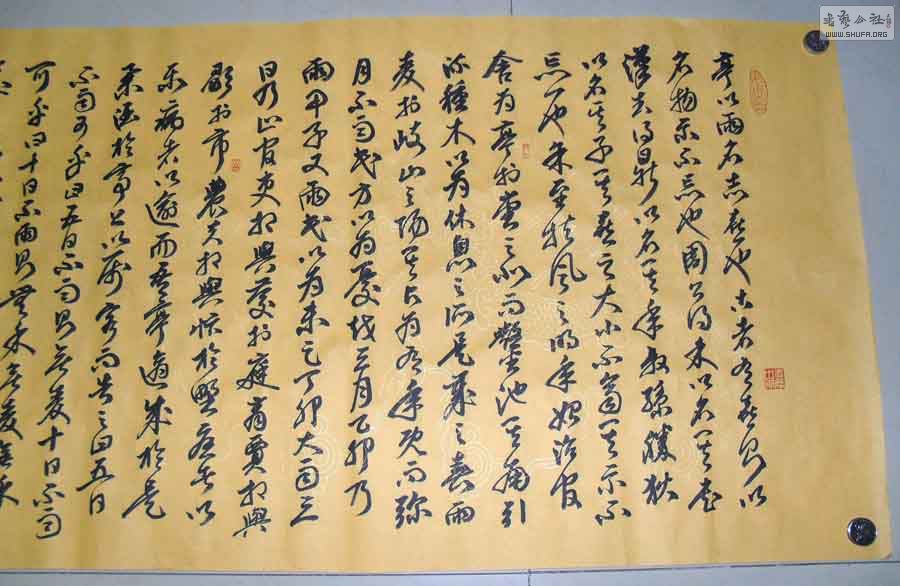 亭以雨名志喜也古者有喜則以
名物示不忘也周公得禾以名其書
漢武得鼎以名其年叔孫勝狄
以名其子其喜之大小不齊其示不
忘一也余至扶風之明年始治官
舍為亭於堂之北而鑿池其南引
流種木以為休息之所是歲之春雨
麥於岐山之陽其占為有年既而彌
月不雨民方以為憂越三月乙卯乃
雨甲子又雨民以為未足丁卯大雨三
日乃止官吏相與慶於庭商賈相與
歌於市農夫相與忭於野憂者以
樂病者以愈而吾亭適成於是
舉酒於亭上以屬客而告之曰五日
不雨可乎曰五日不雨則無麥十日不雨
可乎曰十日不雨則無禾無麥無禾
書藝公社
WWW.SHUFA.ORG